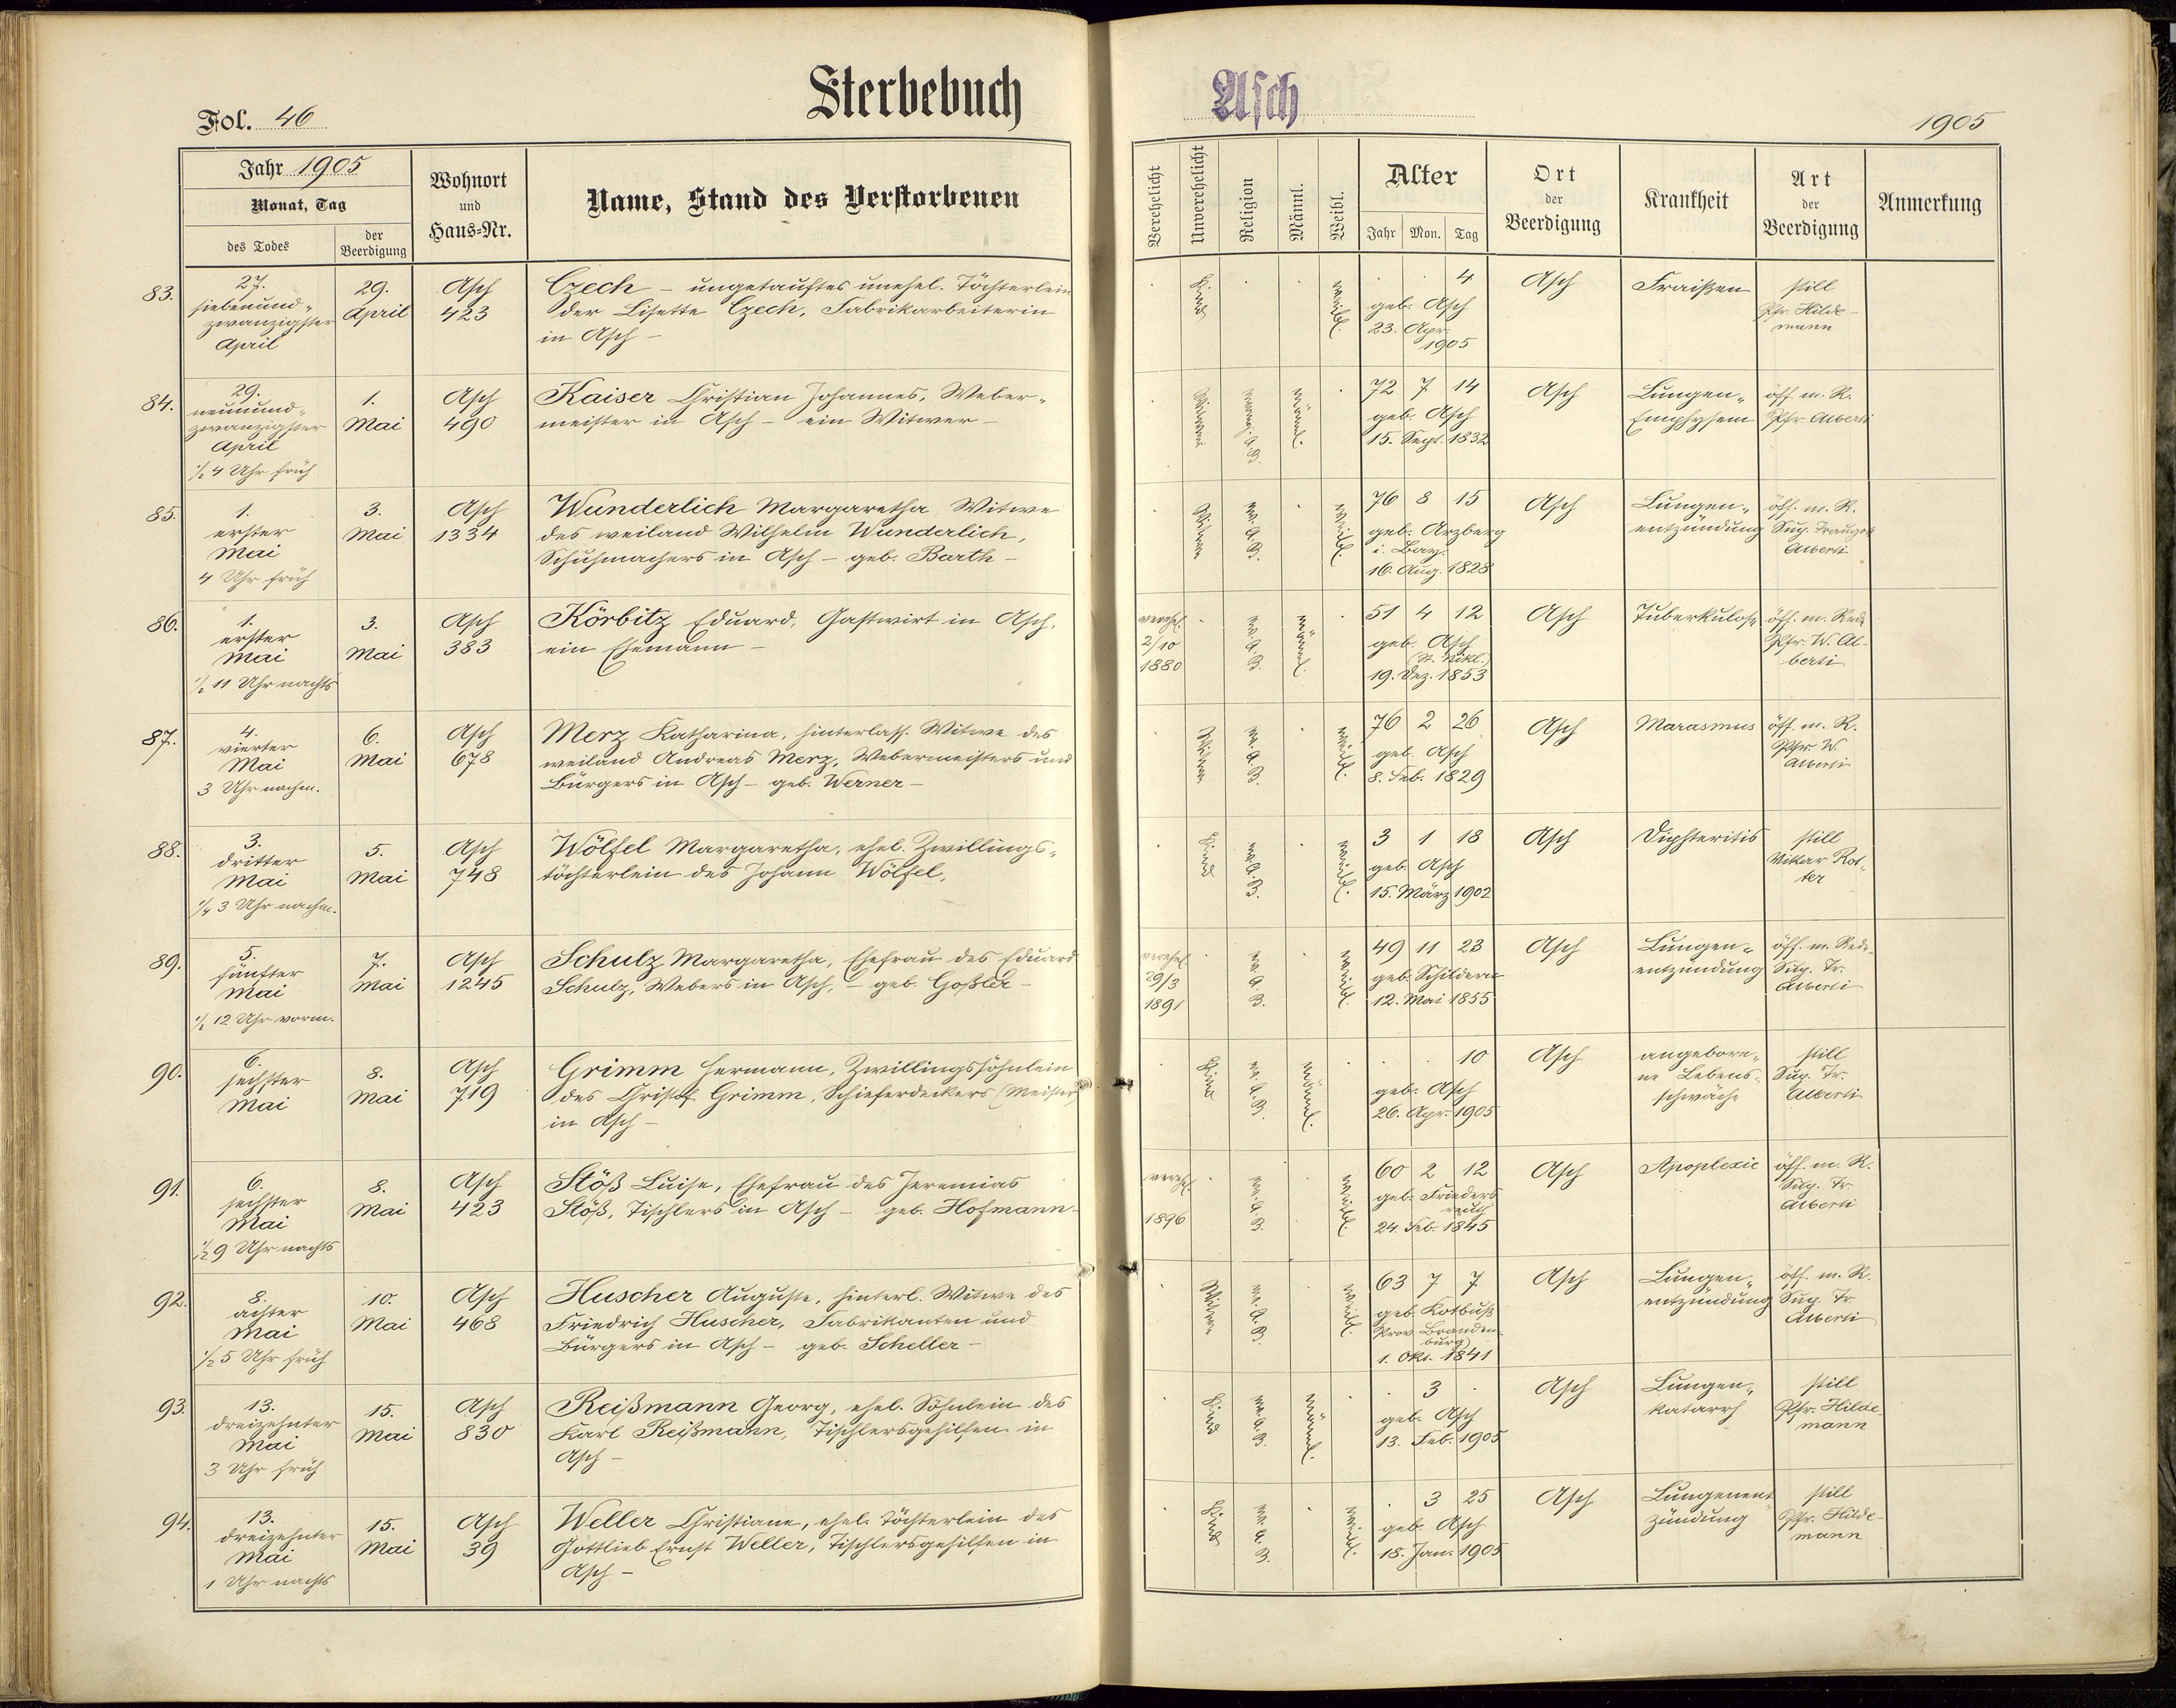 Fol. 46
Sterbebuch
Asch
1905
Jahr 1905
Monat, Tag
des Todes
der Beerdigung
Wohnort und Haus-Nr.
Name, Stand des Verstorbenen
Verehelicht
Unverehelicht
Religion
Männl.
Weibl.
Alter
Jahr Mon. Tag
Ort der Beerdigung
Krankheit
Art der Beerdigung
Anmerkung
83.
27.
siebenund-
zwanzigster
April
29.
April
Asch
423
Czech – ungetauftes unehel. Töchterlein
der Lisette Czech, Fabrikarbeiterin
in Asch –
Kind
weibl.
4
geb. Asch
23. Apr.
1905
Asch
Fraißen
still
Pfr. Hilde-
mann
84.
29.
neunund-
zwanzigster
April
1/2 4 Uhr früh
1.
Mai
Asch
490
Kaiser Christian Johannes, Weber-
meister in Asch – ein Witwer –
Witwer
evang. A. B.
männl.
72 7 14
geb. Asch
15. Sept. 1832
Asch
Lungen-
Emphysem
öff. m. R.
Pfr. Alberti
85.
1.
erster
Mai
4 Uhr früh
3.
Mai
Asch
1334
Wunderlich Margaretha, Witwe
des weiland Wilhelm Wunderlich,
Schuhmachers in Asch – geb. Barth –
Witwe
ev. A. B.
weibl.
76 8 15
geb. Arzberg
i. Bay.
16. Aug. 1828
Asch
Lungen-
entzündung
öff. m. R.
Sup. Traugott
Alberti
86.
1.
erster
Mai
1/2 11 Uhr nachts
3.
Mai
Asch
383
Körbitz Eduard, Gastwirt in Asch,
ein Ehemann –
verehel.
2/10
1880
ev. A. B.
männl.
51 4 12
geb. Asch
(St. Nikl.)
19. Dez. 1853
Asch
Tuberkulose
öff. m. Rede
Pfr. W. Al-
berti
87.
4.
vierter
Mai
3 Uhr nachm.
6.
Mai
Asch
678
Merz Katharina, hinterlass. Witwe des
weiland Andreas Merz, Webermeisters und
Bürgers in Asch – geb. Werner –
Witwe
ev. A. B.
weibl.
76 2 26
geb. Asch
8. Feb. 1829
Asch
Marasmus
öff. m. R.
Pfr. W.
Alberti
88.
3.
dritter
Mai
1/4 3 Uhr nachm.
5.
Mai
Asch
748
Wölfel Margaretha, ehel. Zwillings-
töchterlein des Johann Wölfel,
Kind
ev. A. B.
weibl.
3 1 18
geb. Asch
15. März 1902
Asch
Diphteritis
still
Vikar Rot-
ter
89.
5.
fünfter
Mai
1/2 12 Uhr vorm.
7.
Mai
Asch
1245
Schulz Margaretha, Ehefrau des Eduard
Schulz, Webers in Asch, – geb. Goßler –
verehel.
29/3
1891
ev. A. B.
weibl.
49 11 23
geb. Schildern
12. Mai 1855
Asch
Lungen-
entzündung
öff. m. Rede
Sup. Tr.
Alberti
90.
6.
sechster
Mai
8.
Mai
Asch
719
Grimm Hermann, Zwillingssöhnlein
des Christof Grimm, Schieferdeckers (Meister)
in Asch –
Kind
ev. A. B.
männl.
10
geb. Asch
26. Apr. 1905
Asch
angebore-
ne Lebens-
schwäche
still
Sup. Tr.
Alberti
91.
6.
sechster
Mai
1/2 9 Uhr nachts
8.
Mai
Asch
423
Stöß Luise, Ehefrau des Jeremias
Stöß, Tischlers in Asch – geb. Hofmann –
verehel.
1896
ev. A. B.
weibl.
60 2 12
geb. Frieders
reuth
24. Feb. 1845
Asch
Apoplexie
öff. m. R.
Sup. Tr.
Alberti
92.
8.
achter
Mai
1/2 5 Uhr früh
10.
Mai
Asch
468
Huscher Auguste, hinterl. Witwe des
Friedrich Huscher, Fabrikanten und
Bürgers in Asch – geb. Scheller –
Witwe
ev. A. B.
weibl.
63 7 7
geb. Kotbuß
Prov. Branden-
burg)
1. Okt. 1841
Asch
Lungen-
entzündung
öff. m. R.
Sup. Tr.
Alberti
93.
13.
dreizehnter
Mai
3 Uhr früh
15.
Mai
Asch
830
Reißmann Georg, ehel. Söhnlein des
Karl Reißmann, Tischlersgehilfen in
Asch –
Kind
ev. A. B.
männl.
3
geb. Asch
13. Feb. 1905
Asch
Lungen-
katarrh
still
Pfr. Hilde-
mann
94.
13.
dreizehnter
Mai
1 Uhr nachts
15.
Mai
Asch
39
Weller Christiane, ehel. Töchterlein des
Gottlieb Ernst Weller, Tischlersgehilfen in
Asch –
Kind
ev. A. B.
weibl.
3 25
geb. Asch
18. Jan. 1905
Asch
Lungenent
zündung
still
Pfr. Hilde-
mann